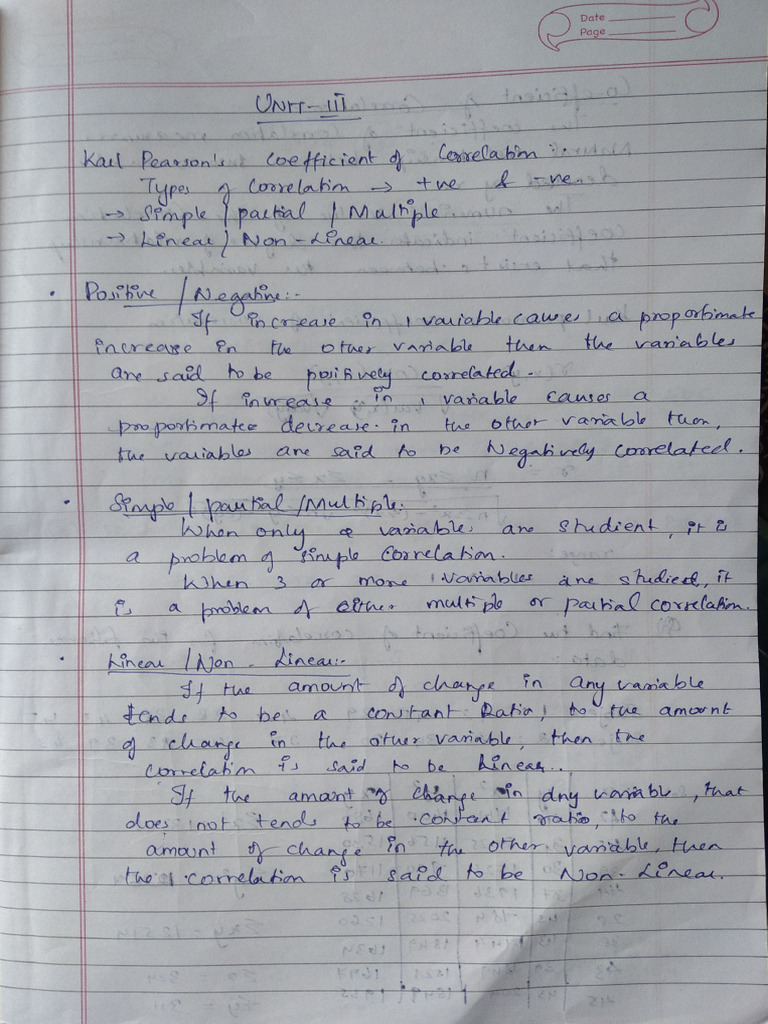 Date
Page
UNIT-III
Karl Pearson's Coefficient of Correlation :-
Types of Correlation → +ve & -ve.
→ Simple / partial / Multiple
→ Linear / Non-Linear.
• Positive / Negative:-
If increase in 1 variable causes a proportimate
increase in the other variable then the variables
are said to be positively correlated.
If increase in 1 variable causes a
proportimatee decrease in the other variable then,
the variables are said to be Negatively correlated.
• Simple / partial / Multiple:
When only 2 variables are studient, it is
a problem of simple correlation.
When 3 or more variables are studied, it
is a problem of either multiple or partial correlation.
• Linear / Non - Linear:-
If the amount of change in any variable
tends to be a constant Ratio, to the amount
of change in the other variable, then the
correlation is said to be Linear..
If the amount of change in any variable, that
does not tends to be constant ratio, to the
amount of change in the other variable, then
the correlation is said to be Non-Linear.